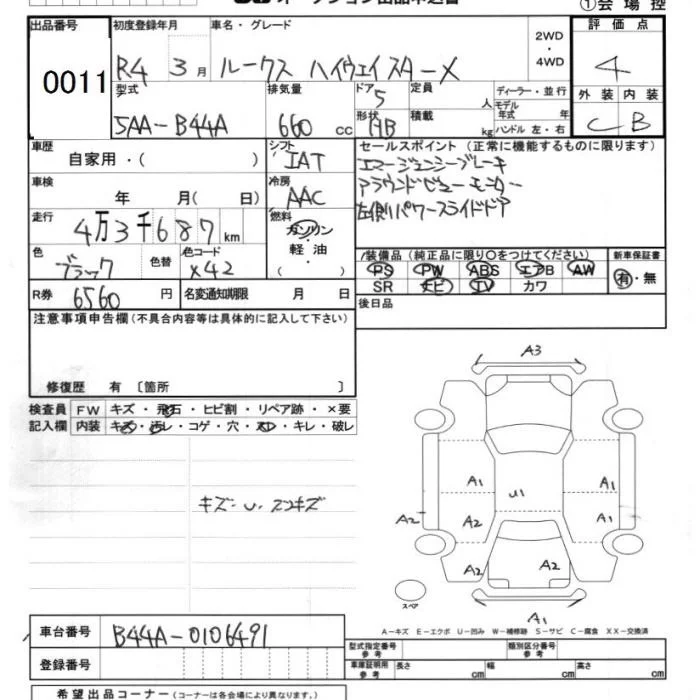 ①会場控
出品番号 初度登録年月 車名・グレード 2WD ・ 4WD 評価点
0011 R4 3月 ルークス ハイウェイスターX 4
型式 排気量 ドア 定員 ディーラー・並行 外装 内装
5AA-B44A 660cc 5 人 モデル年式 年 C B
形状 HB 積載 kg ハンドル 左・右
車歴 シフト セールスポイント (正常に機能するものに限ります)
自家用・( ) IAT エマージェンシーブレーキ
車検 冷房 アラウンドビューモニター
年 月( 日) AAC 左側パワースライドドア
走行 燃料
4万3千687km ガソリン
色 色替 色コード 軽・油 装備品 (純正品に限り○をつけてください) 新車保証書
ブラック X42 ( ) PS PW ABS エアB AW 有・無
R券 6560円 名変通知期限 月 日 SR ナビ TV カワ
注意事項申告欄(不具合内容等は具体的に記入して下さい) 後日品
修復歴 有 〔箇所 〕
検査員 FW キズ・飛石・ヒビ割・リペア跡・×要
記入欄 内装 キズ・汚レ・コゲ・穴・スレ・キレ・破レ
キズ・U・スリキズ
A3
A1
A1
U1
A2
A2
A1
A2
A2
スペア
A1
A-キズ E-エクボ U-凹み W-補修跡 S-サビ C-腐食 XX-交換済
車台番号 B44A-0106491
登録番号
型式指定番号 参考 類別区分番号 参考
車庫証明用 参考 長さ cm 幅 cm 高さ cm
希望出品コーナー (コーナーは各会場により異なります。)